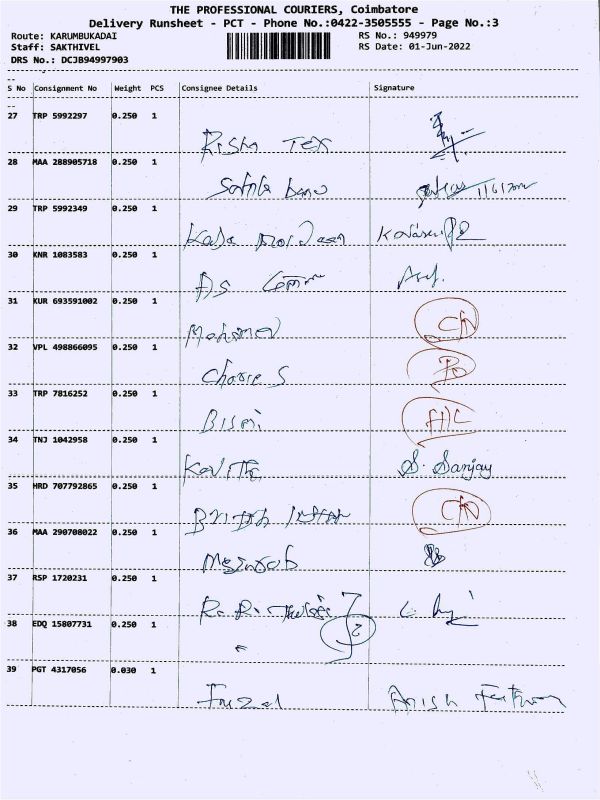 THE PROFESSIONAL COURIERS, Coimbatore
Delivery Runsheet - PCT - Phone No.:0422-3505555 - Page No.:3
Route: KARUMBUKADAI RS No.: 949979
Staff: SAKTHIVEL RS Date: 01-Jun-2022
DRS No.: DCJB94997903
S No Consignment No Weight PCS Consignee Details Signature
27 TRP 5992297 0.250 1
Risha Tex
28 MAA 288905718 0.250 1
Banu 1/6/2022
29 TRP 5992349 0.250 1
30 KNR 1083583 0.250 1
AS
31 KUR 693591002 0.250 1
Mohamed C/N
32 VPL 498866095 0.250 1
Choice S
33 TRP 7816252 0.250 1
Bismi
34 TNJ 1042958 0.250 1
Kavitha S. Sanjay
35 HRD 707792865 0.250 1
British C/N
36 MAA 290708022 0.250 1
37 RSP 1720231 0.250 1
R. R.
38 EDQ 15807731 0.250 1
2
39 PGT 4317056 0.030 1
Faizal Anish